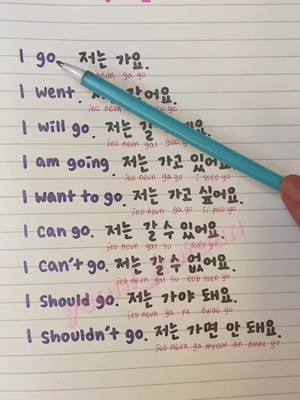 I go. 저는 가요.
neun ga yo
I went. 어요.
jeo neun
I will go. 저는 갈
jeo neun gal
I am going. 저는 가고 있어요.
jeo neun ga go i sseo yo
I want to go. 저는 가고 싶어요.
jeo neun ga go si peo yo
I can go. 저는 갈 수 있어요.
jeo neun gal su i sseo yo
I can't go. 저는 갈 수 없어요.
jeo neun gal su eob sseo yo
I should go. 저는 가야 돼요.
jeo neun ga ya dwae yo
I shouldn't go. 저는 가면 안 돼요.
jeo neun ga myeon an dwae yo